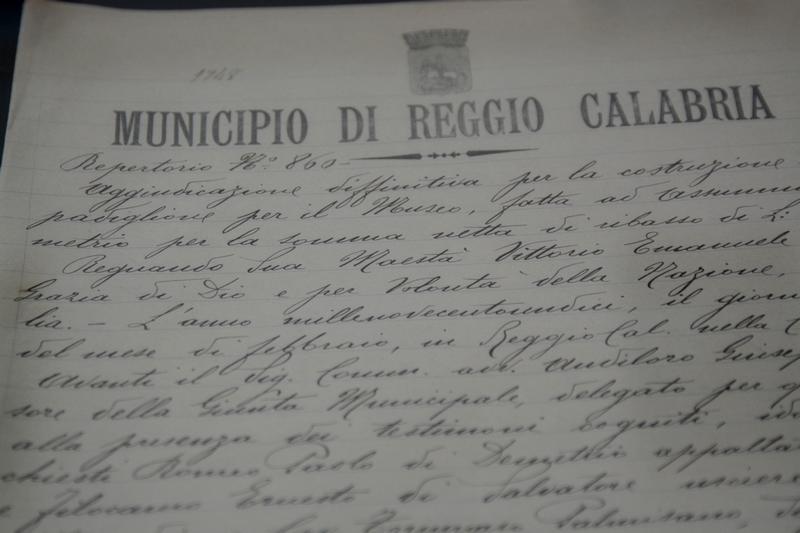 1748
MUNICIPIO DI REGGIO CALABRIA
Repertorio N.º 860
Aggiudicazione diffinitiva per la costruzione
padiglione per il Museo, fatta ad Assumma
metrio per la somma netta di ribasso di L.
Regnando Sua Maestà Vittorio Emanuele
Grazia di Dio e per Volontà della Nazione,
lia. - L'anno millenovecentoundici, il giorn
del mese di febbraio, in Reggio Cal. nella
Avanti il Sig. Comm. avv. Giusep
sore della Giunta Municipale, delegato per
alla presenza dei testimoni cogniti, ido
chiesti Romeo Paolo di Demetrio appalta
e Filocamo Ernesto di Salvatore usciere
Tommaso Palmisano,